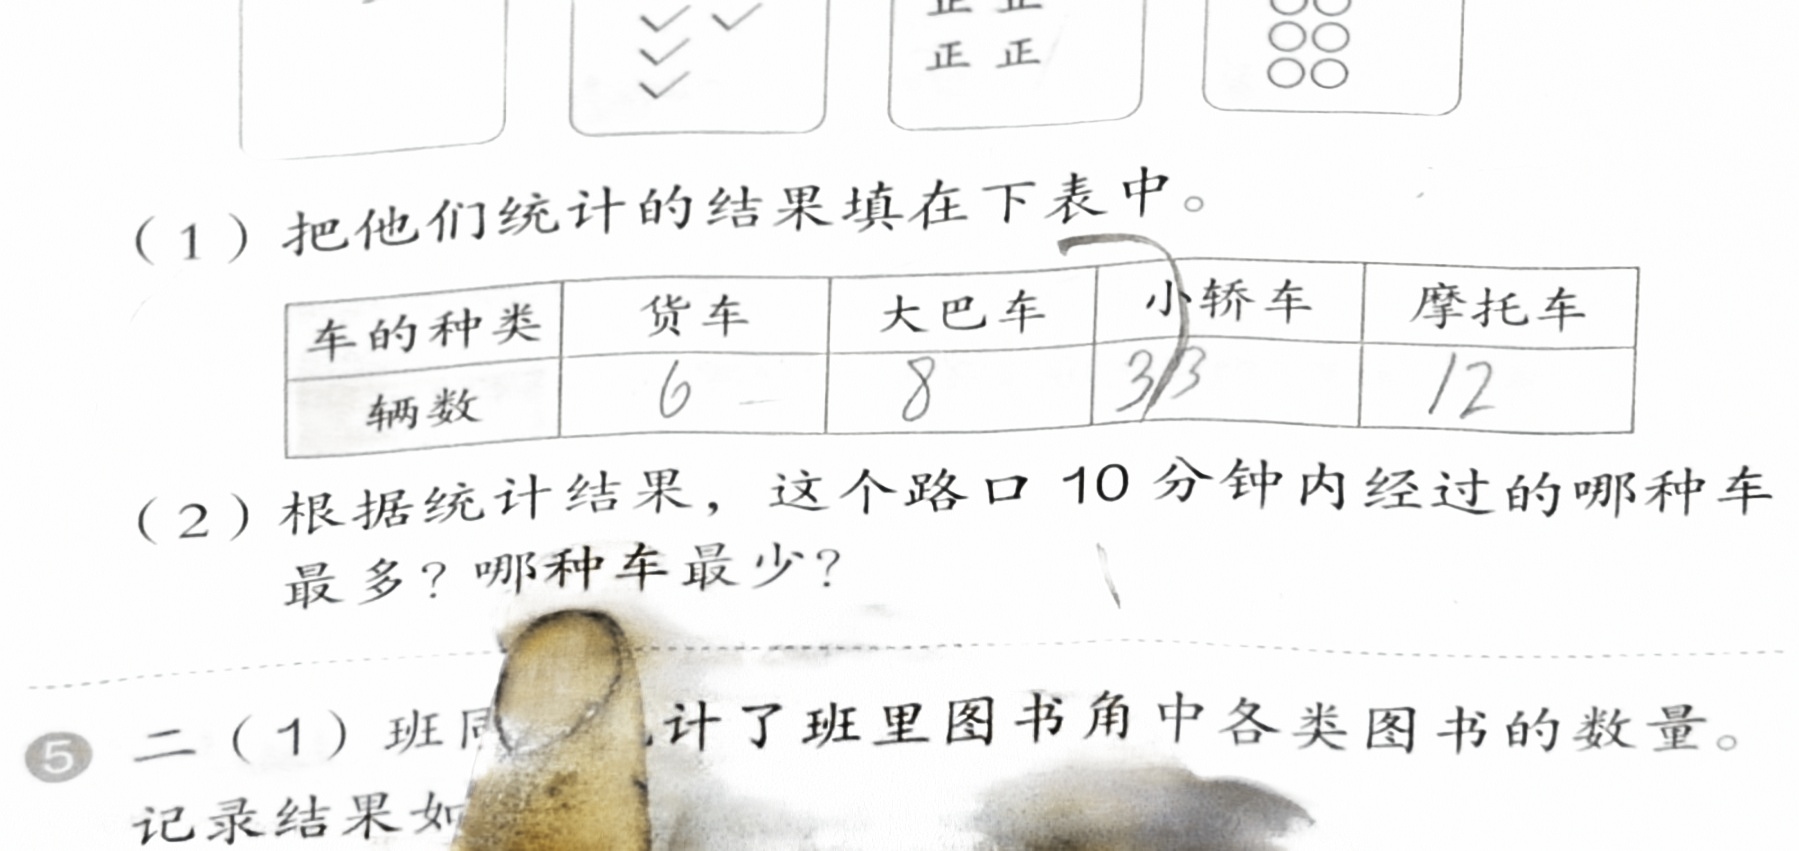 正 正
正 正
(1) 把他们统计的结果填在下表中。
车的种类 货车 大巴车 小轿车 摩托车
辆数 6 8 33 12
(2) 根据统计结果，这个路口 10 分钟内经过的哪种车
最多？哪种车最少？
5 二(1)班 计了班里图书角中各类图书的数量。
记录结果如